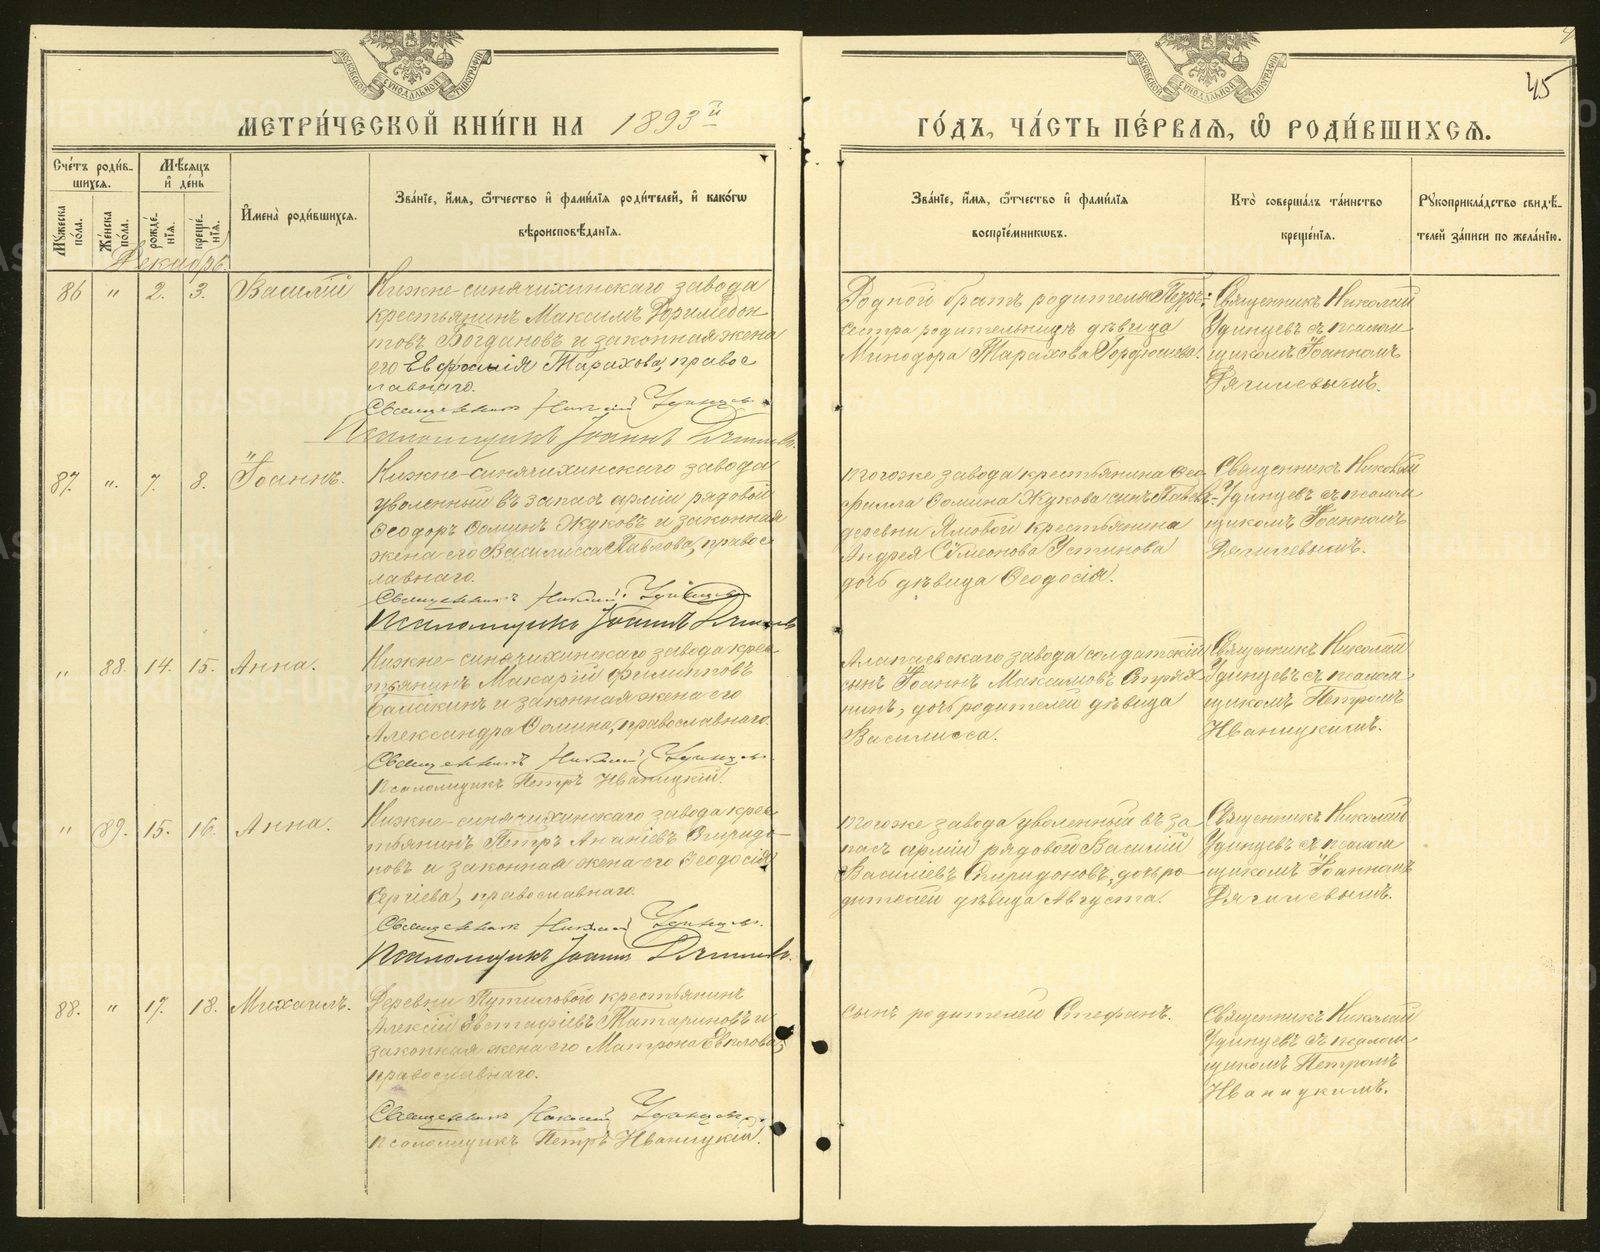 МЕТРИ́ЧЕСКОЙ КНИ́ГИ НА 1893 й
ГО́ДЪ, ЧА́СТЬ ПЕ́РВАЯ, Ѡ҆ РОДИ́ВШИХСЯ.
45
МОСКОВСКОЙ СѴНОДАЛЬНОЙ ТИПОГРАФІИ
МОСКОВСКОЙ СѴНОДАЛЬНОЙ ТИПОГРАФІИ
Сче́тъ роди́вшихся.
Мѣ́сяцъ и҆ де́нь
Мꙋ́жеска по́ла.
Же́нска по́ла.
рожде́нїя.
креще́нїя.
И҆мена̀ роди́вшихся.
Зва́нїе, и҆́мя, ѻ҆́тчество и҆ фами́лїя роди́телей, и҆ како́гѡ вѣроисповѣ́данїя.
Зва́нїе, и҆́мя, ѻ҆́тчество и҆ фами́лїя воспрїе́мникѡвъ.
Кто̀ соверша́лъ та́инство креще́нїя.
Рꙋкоприкла́дство свидѣ́телей за́писи по жела́нїю.
Декабрь.
86 " 2. 3. Василій
Нижне-синячихинскаго завода
крестьянинъ Максимъ
Богдановъ и законная жена
его Евфросинія Тарахова, правос
лавнаго.
Священникъ Николай Удинцевъ
Псаломщикъ Іоаннъ
Родной братъ родителя Петръ
сестра родительницы дѣвица
Минодора Тарахова
Священникъ Николай
Удинцевъ съ псалом
щикомъ Іоанномъ
Дягилевымъ.
87. " 7. 8. Іоаннъ.
Нижне-синячихинскаго завода
уволенный въ запасъ арміи рядовой
Ѳеодоръ Ѳоминъ Жуковъ и законная
жена его Василисса Павлова, правос
лавнаго.
Священникъ Николай Удинцевъ
Псаломщикъ Іоаннъ
тогоже завода крестьянина Ѳео
фила Ѳомина Жукова сынъ Павелъ
деревни Ямовой крестьянина
Андрея Сѵмеонова Устинова
дочь дѣвица Ѳеодосія.
Священникъ Николай
Удинцевъ съ псалом
щикомъ Іоанномъ
Дягилевымъ.
" 88. 14. 15. Анна.
Нижне-синячихинскаго завода крес
тьянинъ Макарій Филипповъ
Балакинъ и законная жена его
Александра Ѳомина, православнаго.
Священникъ Николай Удинцевъ
Псаломщикъ Петръ Иваницкій.
Алапаевскаго завода солдатскій
сынъ Іоаннъ Максимовъ Стрях
нинъ, дочь родителей дѣвица
Василисса.
Священникъ Николай
Удинцевъ съ псалом
щикомъ Петромъ
Иваницкимъ.
" 89. 15. 16. Анна.
Нижне-синячихинскаго завода крес
тьянинъ Петръ Ананіевъ Спиридо
новъ и законная жена его Ѳеодосія
Сергіева, православнаго.
Священникъ Николай Удинцевъ
Псаломщикъ Іоаннъ
тогоже завода уволенный въ за
пасъ арміи рядовой Василій
Василіевъ Спиридоновъ, дочь ро
дителей дѣвица Августа.
Священникъ Николай
Удинцевъ съ псалом
щикомъ Іоанномъ
Дягилевымъ.
88. " 17. 18. Михаилъ.
Деревни Путиловой крестьянинъ
Алексій Евстафіевъ Татариновъ и
законная жена его Матрона
православнаго.
Священникъ Николай Удинцевъ
Псаломщикъ Петръ Иваницкій.
сынъ родителей Стефанъ.
Священникъ Николай
Удинцевъ съ псалом
щикомъ Петромъ
Иваницкимъ.